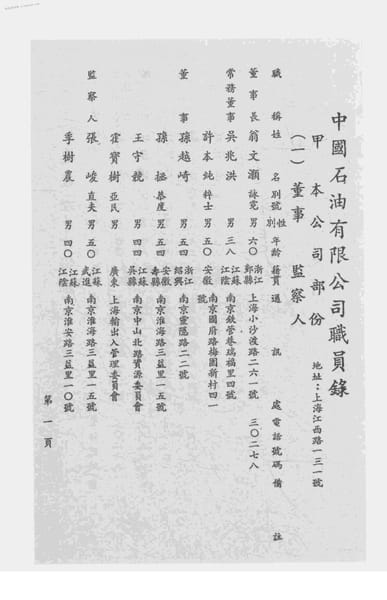 中國石油有限公司職員錄
地址：上海江西路一三一號
甲 本公司部份
（一）董事 監察人
職稱 姓名 別號 性別 年齡 籍貫 通訊處 電話號碼 備註
董事長 翁文灝 詠霓 男 六〇 浙江鄞縣 上海小沙渡路二六一號 三〇二七八
常務董事 吳兆洪 男 三八 江蘇江陰 南京鼓管巷瑞福里四號
許本純 粹士 男 五〇 安徽 南京國府路梅園新村四一號
董事 孫越崎 男 五四 浙江紹興 南京靈隱路二二號
孫拯 恭度 男 五四 安徽壽縣 南京淮海路三益里一五號
王守競 男 四四 江蘇吳縣 南京中山北路資源委員會
霍寶樹 亞民 男 廣東 上海輸出入管理委員會
監察人 張峻 直夫 男 五〇 江蘇武進 南京淮海路三益里一五號
季樹農 男 四〇 江蘇江陰 南京淮安路三益里一〇號
第一頁